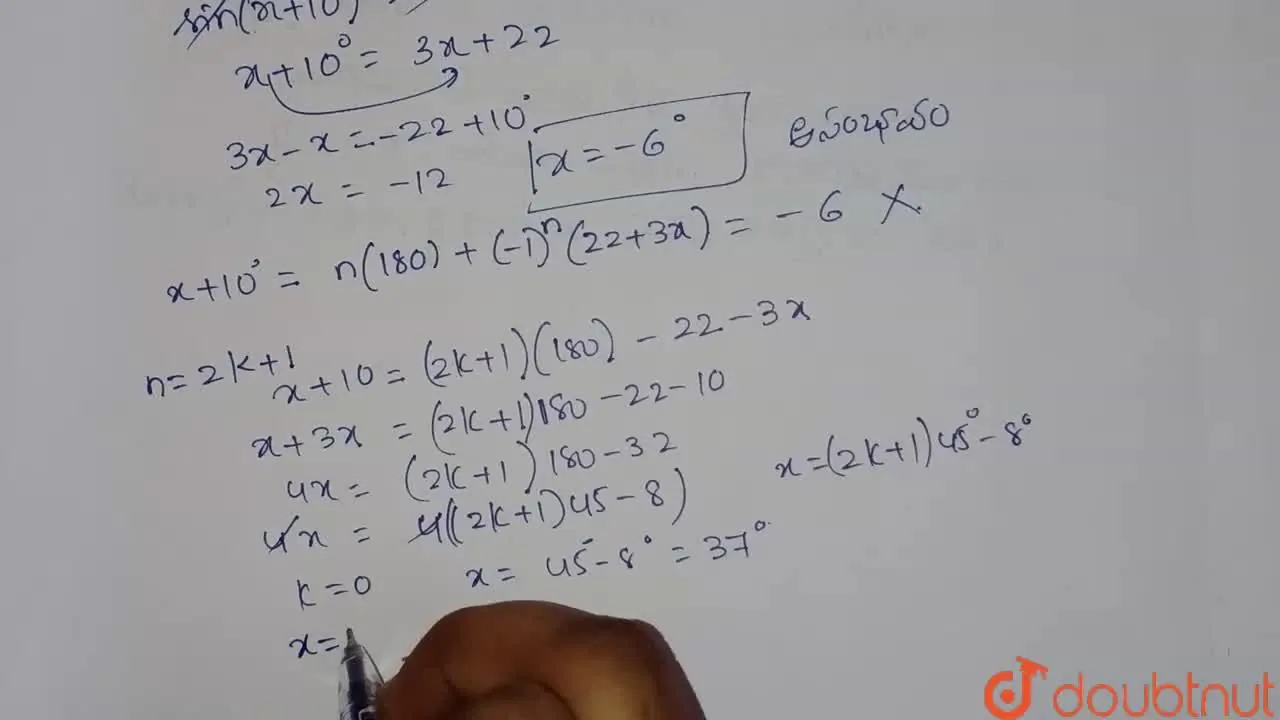 sin(x+10)
x+10° = 3x+22
3x-x = -22+10°
2x = -12
x = -6°
x+10° = n(180) + (-1)ⁿ(22+3x) = -6 X
n=2k+1
x+10 = (2k+1)(180) - 22-3x
x+3x = (2k+1)180-22-10
4x = (2k+1)180-32
4x = 4((2k+1)45-8)
x=(2k+1)45°-8°
k=0 x= 45-8° = 37°
x=
doubtnut